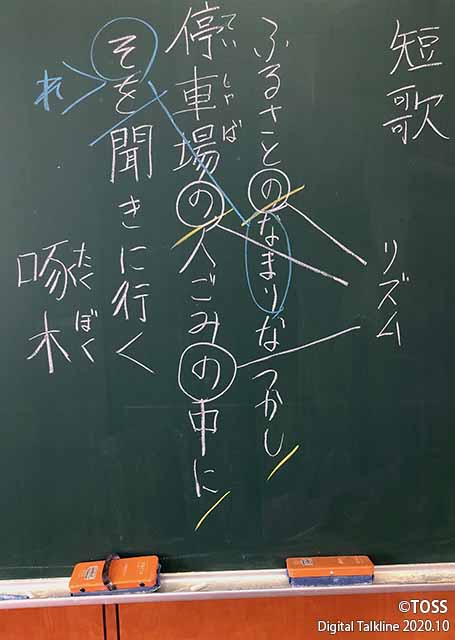 短歌
ふるさとのなまりなつかし
停車場の人ごみの中に
ていしゃば
そを聞きに行く
れ
啄木
たくぼく
リズム
©TOSS
Digital Talkline 2020.10